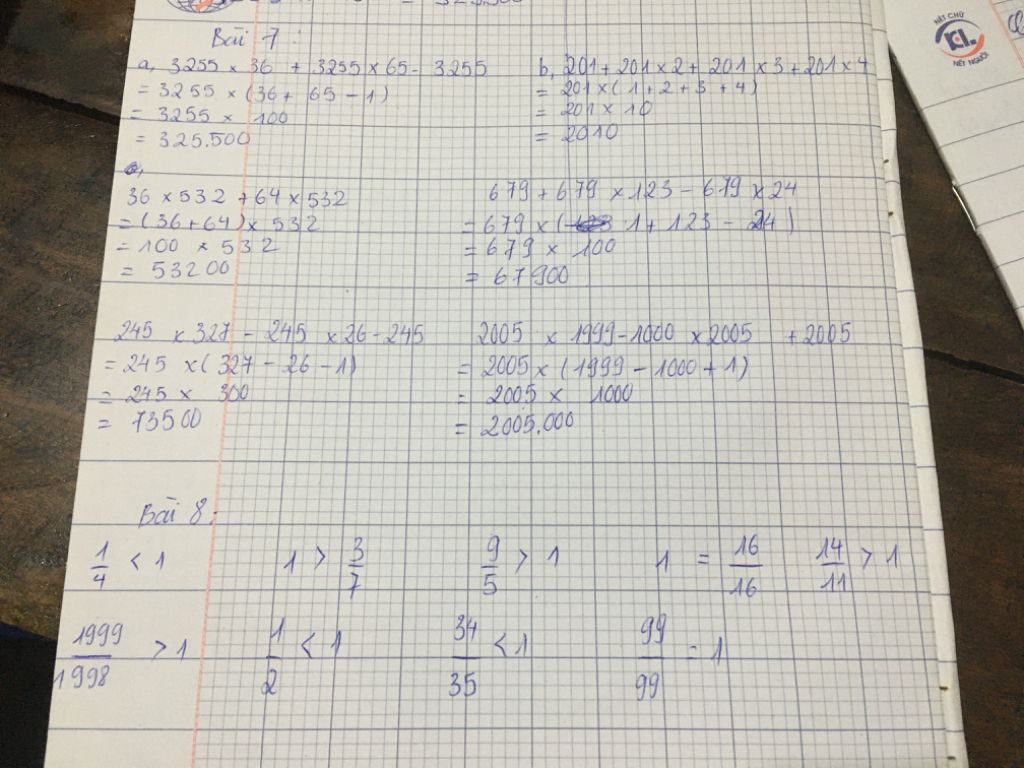 = 325.500
Bài 7:
a, 3255 × 36 + 3255 × 65 - 3255
= 3255 × (36 + 65 - 1)
= 3255 × 100
= 325.500
b, 201 + 201 × 2 + 201 × 3 + 201 × 4
= 201 × (1 + 2 + 3 + 4)
= 201 × 10
= 2010
c,
36 × 532 + 64 × 532
= (36 + 64) × 532
= 100 × 532
= 53200
679 + 679 × 123 - 679 × 24
= 679 × (1 + 123 - 24)
= 679 × 100
= 67900
245 × 327 - 245 × 26 - 245
= 245 × (327 - 26 - 1)
= 245 × 300
= 73500
2005 × 1999 - 1000 × 2005 + 2005
= 2005 × (1999 - 1000 + 1)
= 2005 × 1000
= 2005.000
Bài 8:
1/4 < 1 1 > 3/7 9/5 > 1 1 = 16/16 14/11 > 1
1999/1998 > 1 1/2 < 1 34/35 < 1 99/99 = 1
NÉT CHỮ
NẾT NGƯỜI